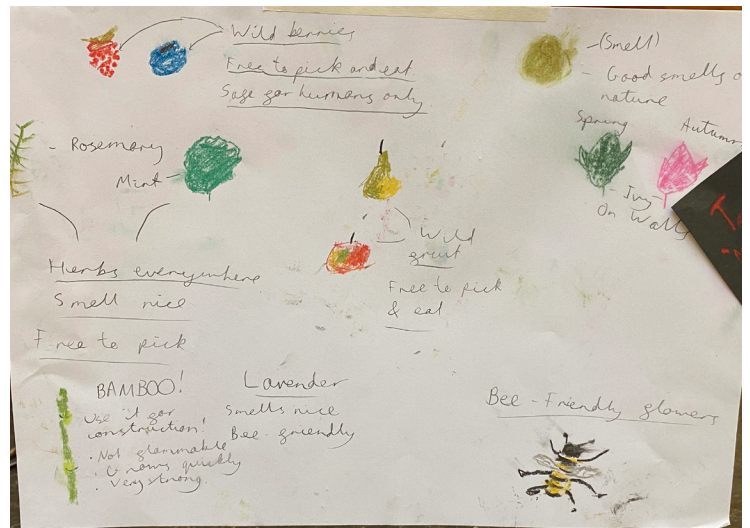 Wild berries
Free to pick and eat.
Safe for humans only.
- (Smell)
- Good smells o
nature
Spring
Autumn
- Ivy
On Walls
- Rosemary
Mint -
Herbs everywhere
Smell nice
Free to pick
Wild
fruit
Free to pick
& eat
BAMBOO!
Use it for
construction!
. Not flammable
. Grows quickly
. Very strong.
Lavender
Smells nice
Bee-friendly
Bee-Friendly flowers